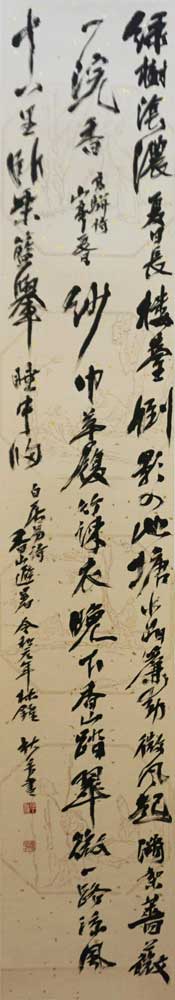 緑樹陰濃夏日長楼臺倒影入池塘水晶簾動微風起満架薔薇
一院香
高駢詩
山亭夏
紗巾草履竹疎衣晩下香山踏翠微一路涼風
十八里卧乗籃轝睡中歸
白居易詩
香山避暑 令和元年林鐘